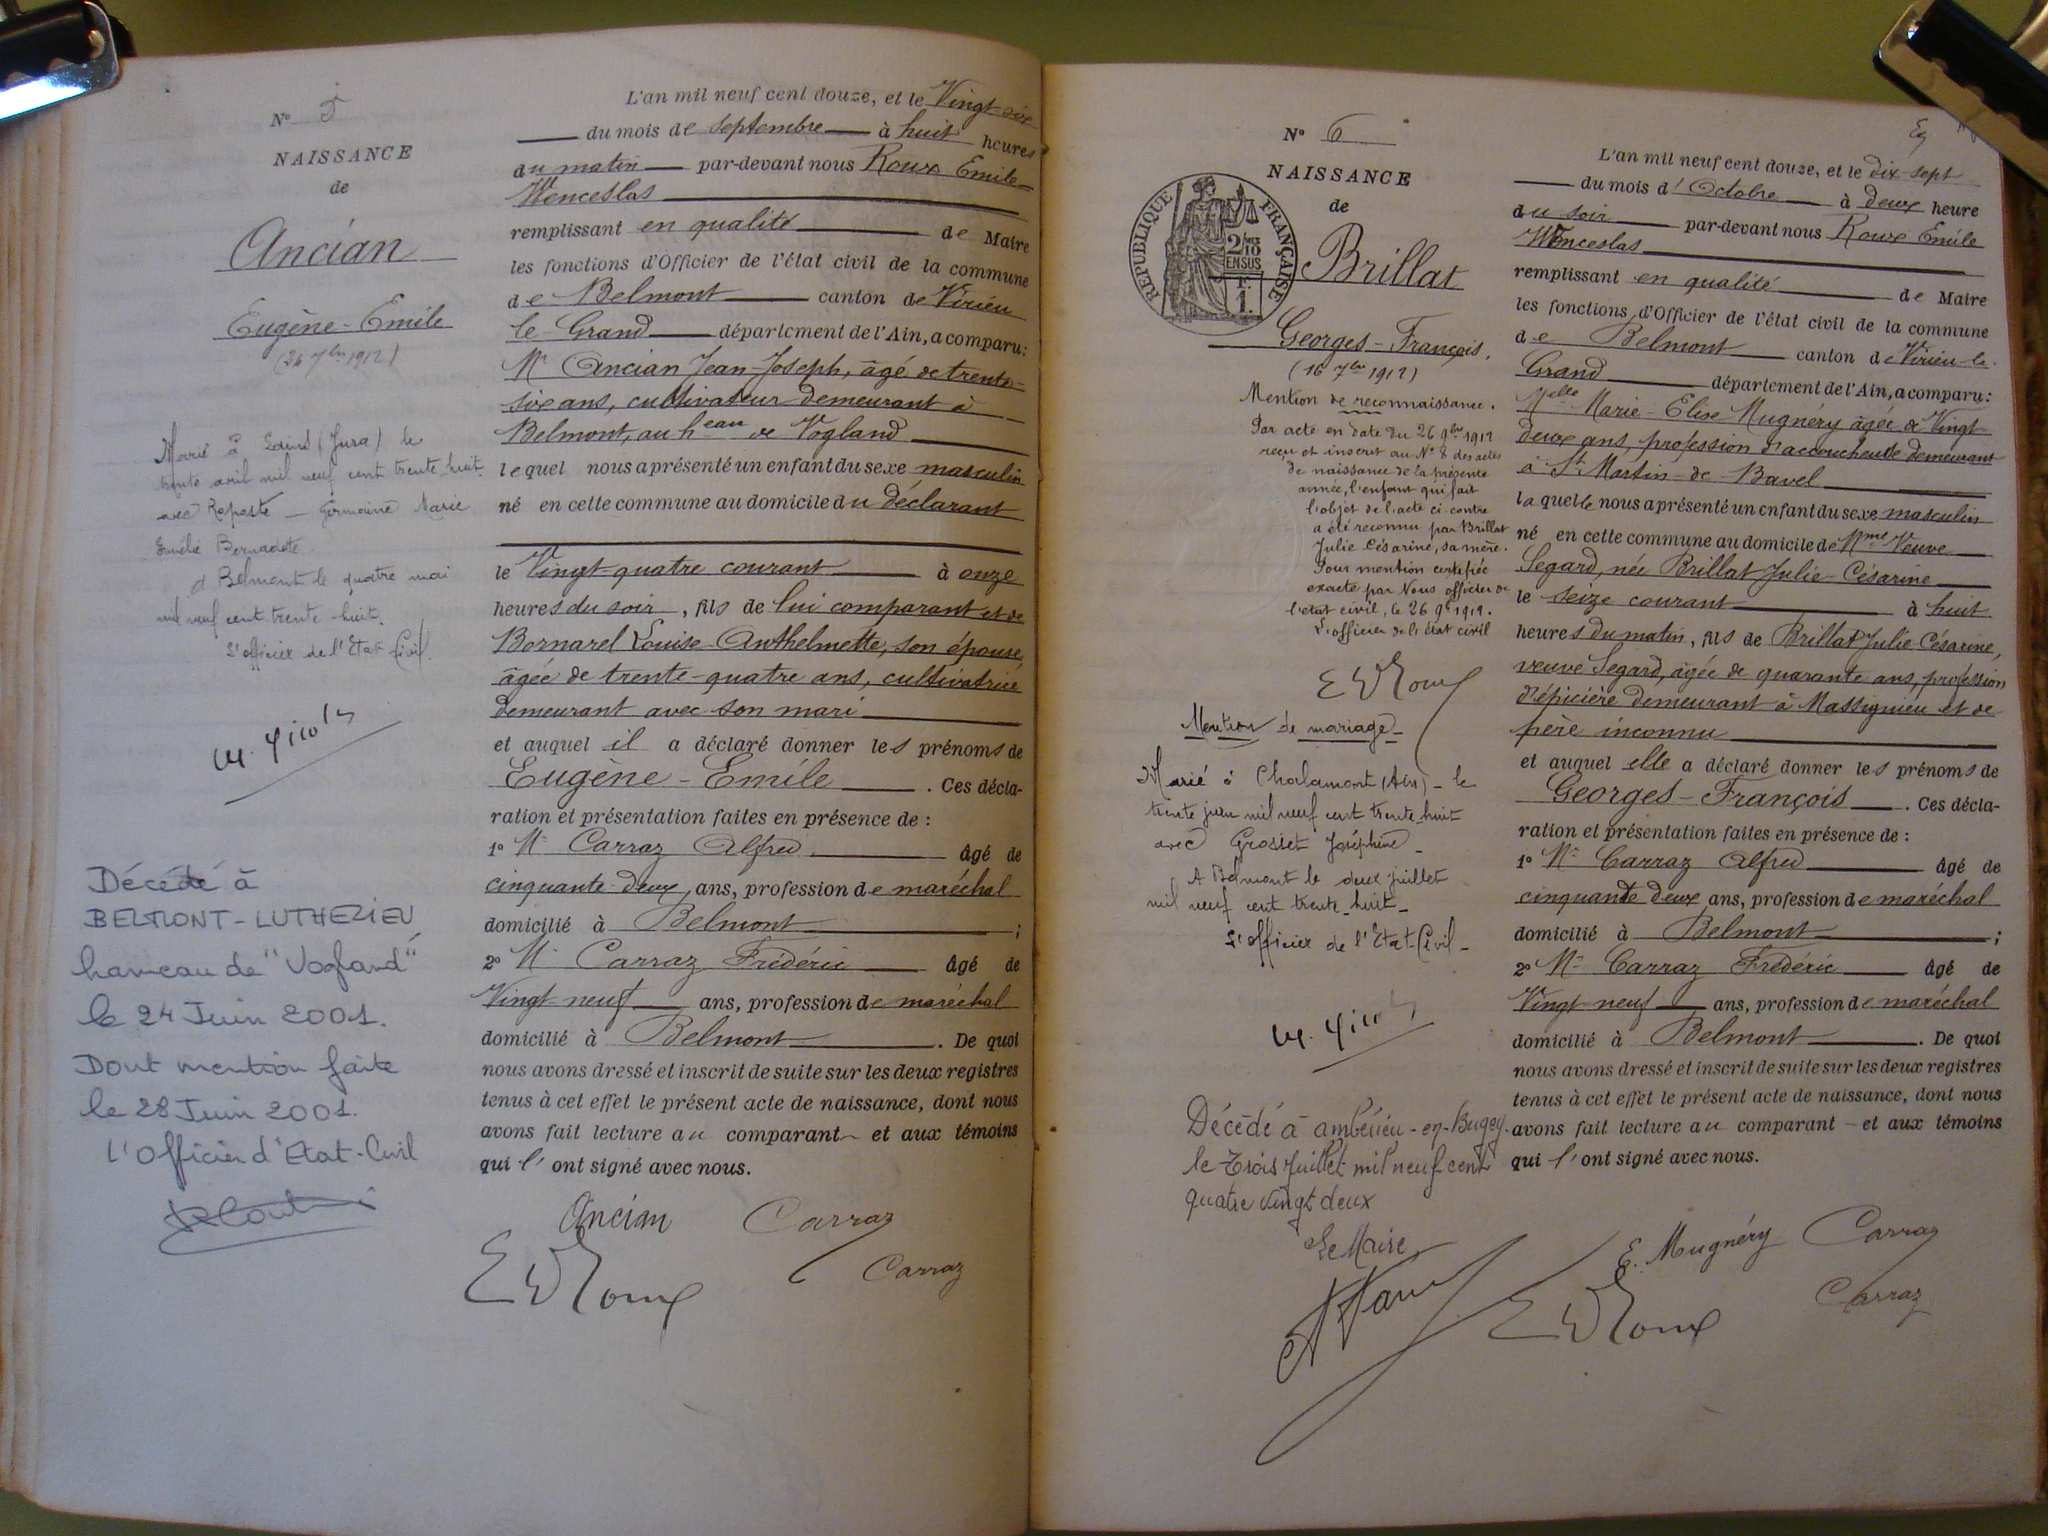 N° 5
NAISSANCE
de
Ancian
Eugène-Emile
(24 7bre 1912)
Marié à (Jura) le
trente avril mil neuf cent trente huit
avec Germaine Marie
Emélie Bernadete
à Belmont le quatre mai
mil neuf cent trente-huit.
L'officier de l'Etat-Civil.
Décédé à
BELMONT-LUTHEZIEU,
hameau de "Vogland"
le 24 Juin 2001.
Dont mention faite
le 28 Juin 2001.
L'Officier d'Etat-Civil
L'an mil neuf cent douze, et le Vingt-six
du mois de septembre à huit heures
du matin par-devant nous Roux Emile-
Wenceslas
remplissant en qualité de Maire
les fonctions d'Officier de l'état civil de la commune
de Belmont canton de Virieu
le Grand département de l'Ain, a comparu:
Mr Ancian Jean-Joseph, âgé de trente-
six ans, cultivateur demeurant à
Belmont, au heau de Vogland
lequel nous a présenté un enfant du sexe masculin
né en cette commune au domicile du déclarant
le Vingt-quatre courant à onze
heures du soir, fils de lui comparant et de
Bornarel Louise-Anthelmette, son épouse,
âgée de trente-quatre ans, cultivatrice
demeurant avec son mari
et auquel il a déclaré donner les prénoms de
Eugène-Emile. Ces décla-
ration et présentation faites en présence de :
1° Mr Carraz Alfred âgé de
cinquante-deux, ans, profession de maréchal
domicilié à Belmont ;
2° Mr Carraz Frédéric âgé de
Vingt neuf ans, profession de maréchal
domicilié à Belmont. De quoi
nous avons dressé et inscrit de suite sur les deux registres
tenus à cet effet le présent acte de naissance, dont nous
avons fait lecture au comparant et aux témoins
qui l'ont signé avec nous.
Ancian Carraz
E W Roux Carraz
N° 6
NAISSANCE
de
RÉPUBLIQUE FRANÇAISE
2/10
EN SUS
1.
Brillat
Georges-François.
(16 7bre 1912)
Mention de reconnaissance.
Par acte en date du 26 9bre 1912
reçu et inscrit au N° 8 des actes
de naissance de la présente
année, l'enfant qui fait
l'objet de l'acte ci-contre
a été reconnu par Brillat
Julie Césarine, sa mère.
Pour mention certifiée
exacte par Nous officier de
l'état civil, le 26 9bre 1912.
L'officier de l'état civil
E W Roux
Mention de mariage
Marié à Chalamont (Ain) - le
trente juin mil neuf cent trente-huit
avec Grosset Joséphine
A Belmont le deux juillet
mil neuf cent trente-huit
L'officier de l'Etat-Civil
Décédé à Ambérieu-en-Bugey.
le trois Juillet mil neuf cent
quatre vingt deux
Le Maire,
L'an mil neuf cent douze, et le dix-sept
du mois d'Octobre à deux heure
du soir par-devant nous Roux Emile
Wenceslas
remplissant en qualité de Maire
les fonctions d'Officier de l'état civil de la commune
de Belmont canton de Virieu-le-
Grand département de l'Ain, a comparu:
Melle Marie-Elise Mugnéry âgée de Vingt-
deux ans, profession d'accoucheuse demeurant
à St Martin-de-Bavel
laquelle nous a présenté un enfant du sexe masculin
né en cette commune au domicile de Mme Veuve
Segard, née Brillat Julie-Césarine
le seize courant à huit
heures du matin, fils de Brillat Julie-Césarine,
veuve Segard, âgée de quarante ans, profession
d'épicière demeurant à Massignieu et de
père inconnu
et auquel elle a déclaré donner les prénoms de
Georges-François. Ces décla-
ration et présentation faites en présence de :
1° Mr Carraz Alfred âgé de
cinquante deux ans, profession de maréchal
domicilié à Belmont ;
2° Mr Carraz Frédéric âgé de
Vingt neuf ans, profession de maréchal
domicilié à Belmont. De quoi
nous avons dressé et inscrit de suite sur les deux registres
tenus à cet effet le présent acte de naissance, dont nous
avons fait lecture au comparant et aux témoins
qui l'ont signé avec nous.
E. Mugnéry Carraz
E W Roux Carraz